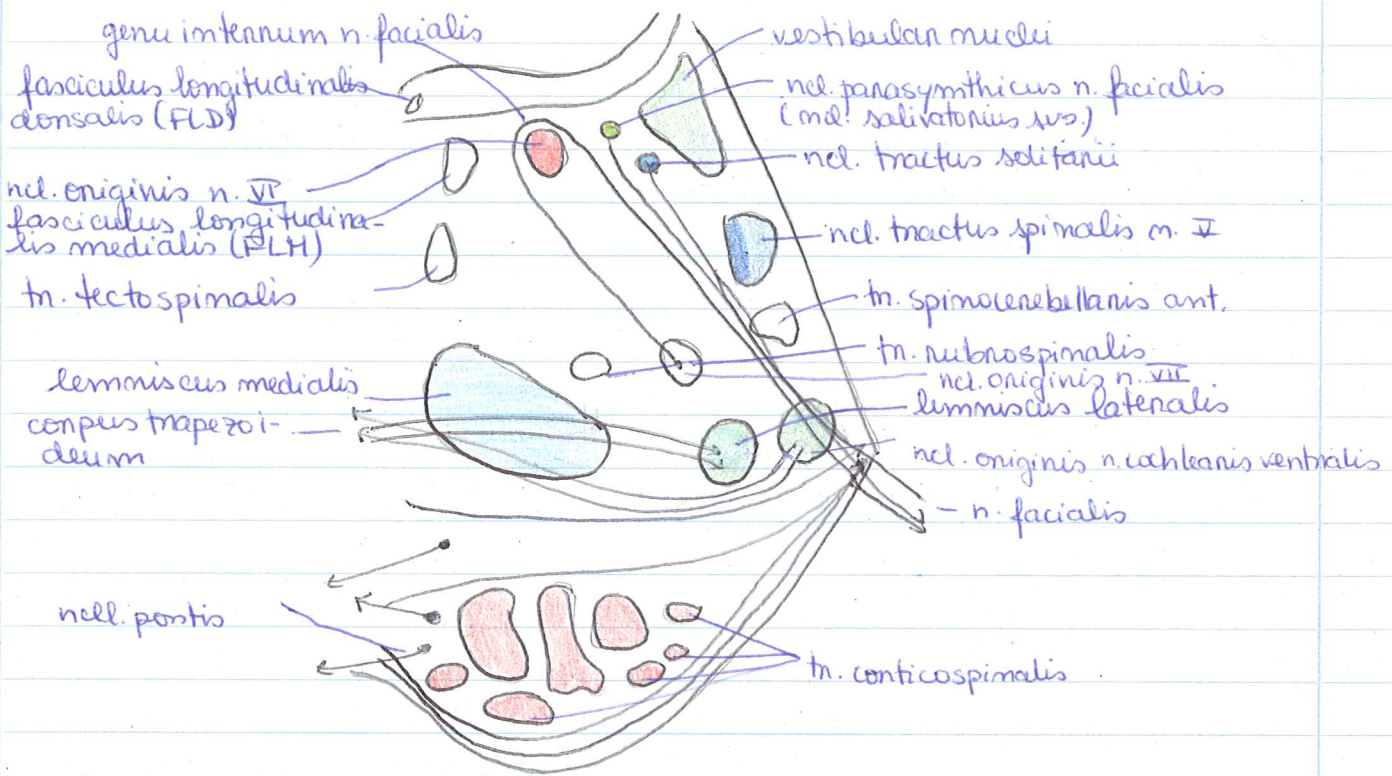 genu internum n. facialis
fasciculus longitudinalis
dorsalis (FLD)
ncl. originis n. VI
fasciculus longitudina-
lis medialis (FLM)
tn. tectospinalis
lemniscus medialis
corpus trapezoi-
deum
ncll. pontis
vestibular nuclei
ncl. parasymthicus n. facialis
(ncl. salivatorius sus.)
ncl. tractus solitarii
ncl. tractus spinalis n. V
tn. spinocerebellaris ant.
tn. rubrospinalis
ncl. originis n. VII
limniscus lateralis
ncl. originis n. cochlearis ventralis
n. facialis
tn. corticospinalis